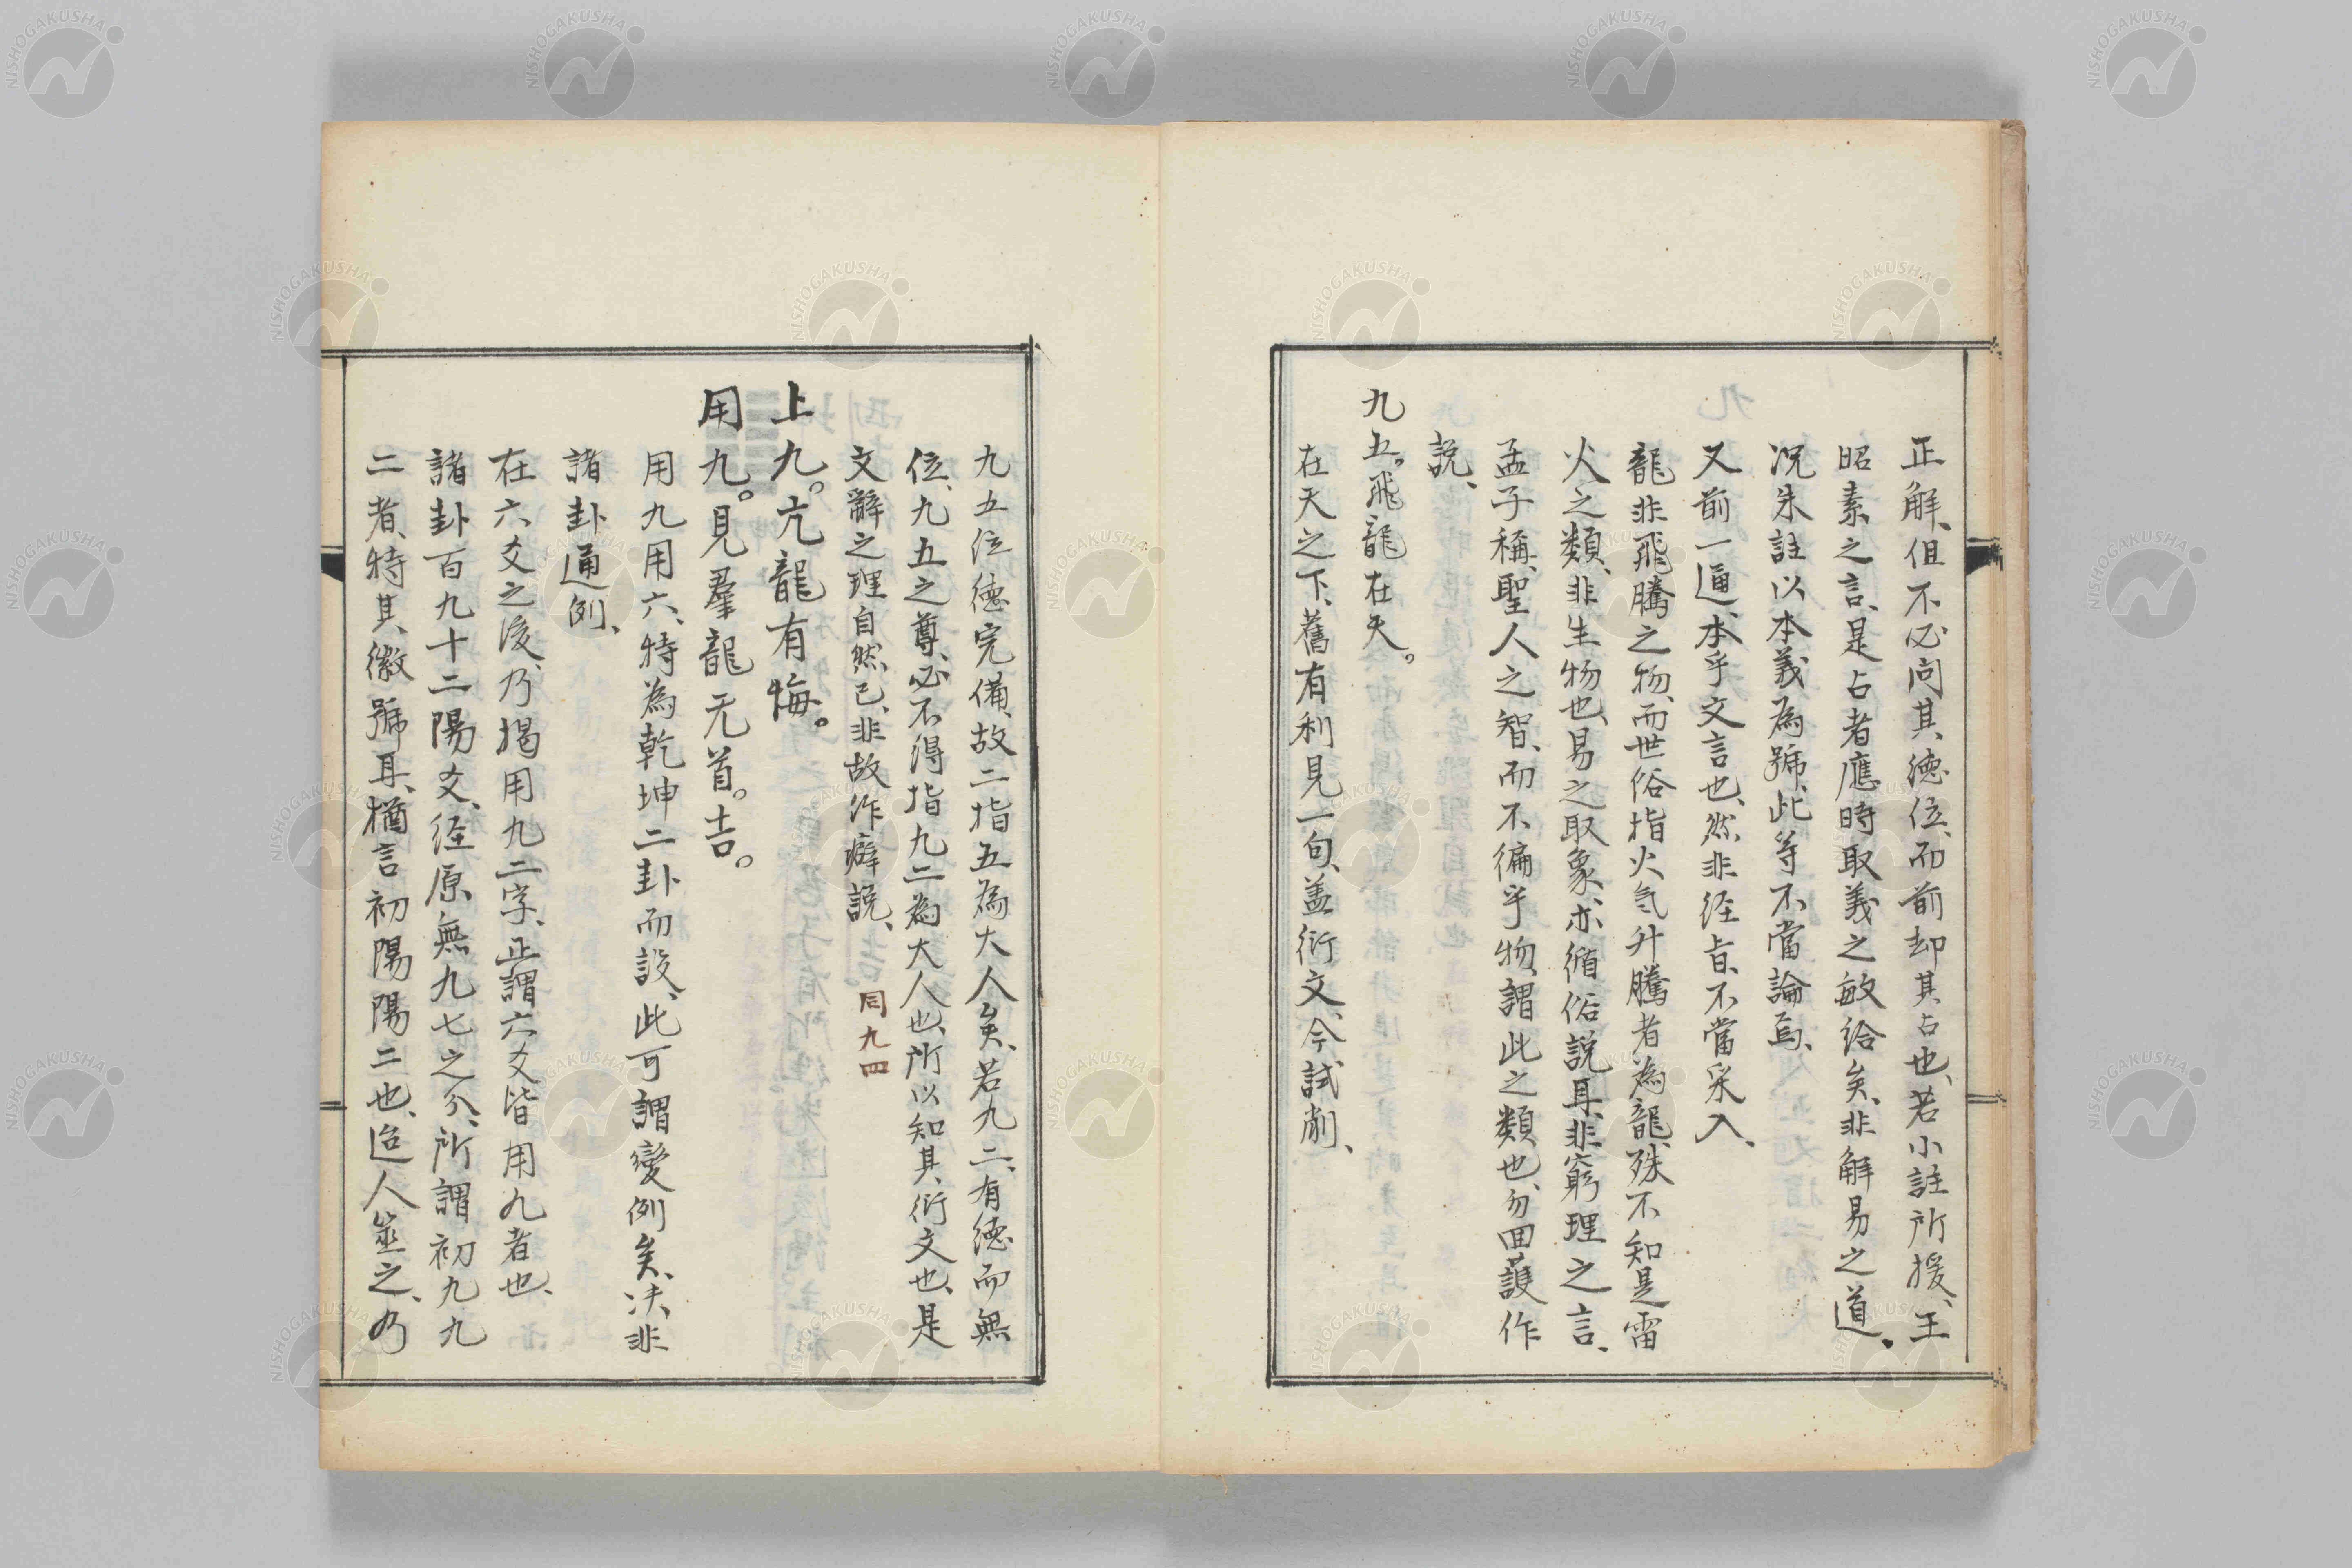 正解、但不必問其徳位、而前却其占也、若小註所援、王
昭素之言、是占者應時取義之敏給矣、非解易之道、
况朱註以本義為號、此等不當論焉、
又前一通、本乎文言也、然非経旨、不當采入、
龍非飛騰之物、而世俗指火气升騰者為龍、殊不知是雷
火之類、非生物也、易之取象、亦循俗説耳、非窮理之言、
孟子稱、聖人之智、而不徧乎物、謂此之類也、勿回護作
説、
九五。飛龍在天。
在天之下、舊有利見一句、盖衍文、今試削、
九五位徳完備、故二指五為大人矣、若九二、有徳而無
位、九五之尊、必不得指九二為大人也、所以知其衍文也、是
文辭之理自然已、非故作癖説、 同九四
上九。亢龍有悔。
用九。見羣龍无首。吉。
用九用六、特為乾坤二卦而設、此可謂變例矣、决非
諸卦通例、
在六爻之後、乃掲用九二字、正謂六爻皆用九者也、
諸卦百九十二陽爻、経原無九七之分、所謂初九九
二者、特其徽號耳、猶言初陽陽二也、迨人筮之、乃
NISHOGAKUSHA